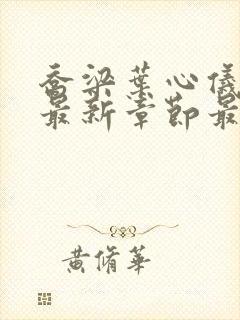 乔梁葉心儀
最新章節最
黃脩華